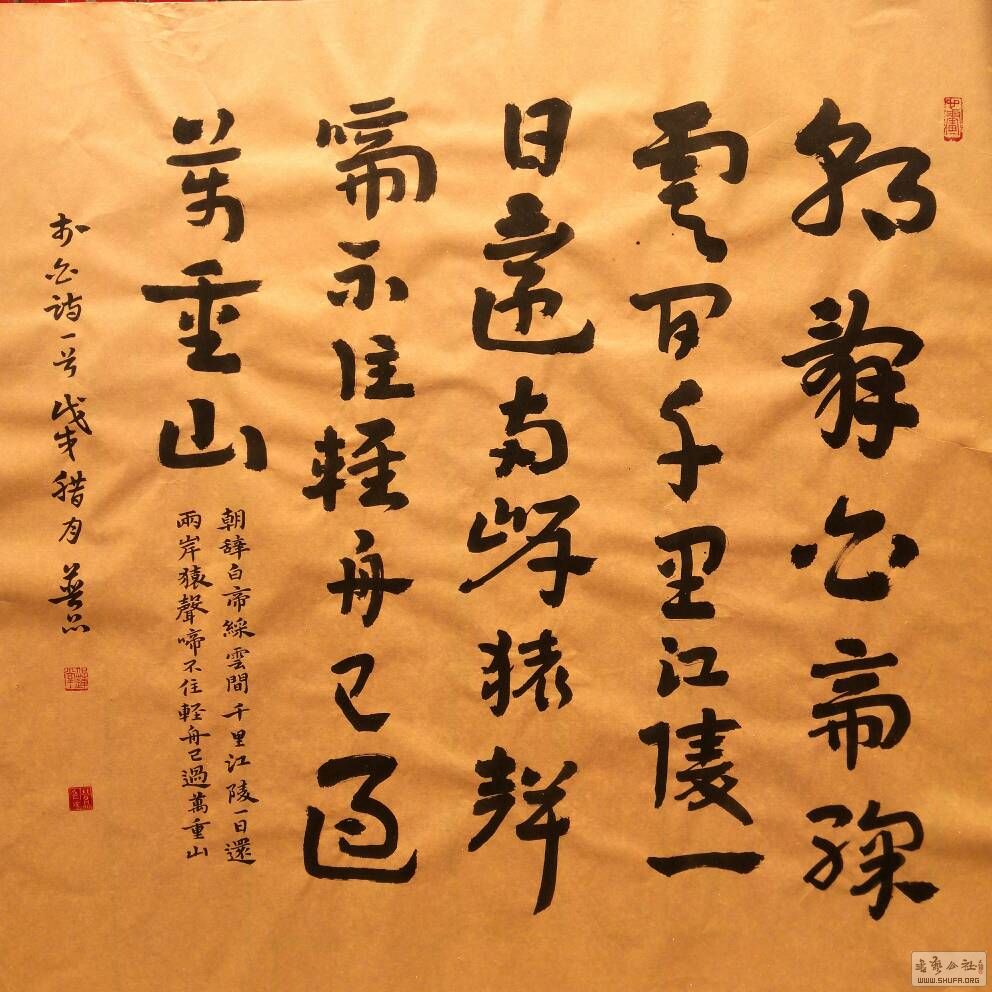 朝辭白帝綵
雲間千里江陵一
日還兩岸猿聲
啼不住輕舟已過
萬重山
朝辭白帝綵雲間千里江陵一日還
兩岸猿聲啼不住輕舟已過萬重山
李白詩一首戊戌腊月
WWW.SHUFA.ORG